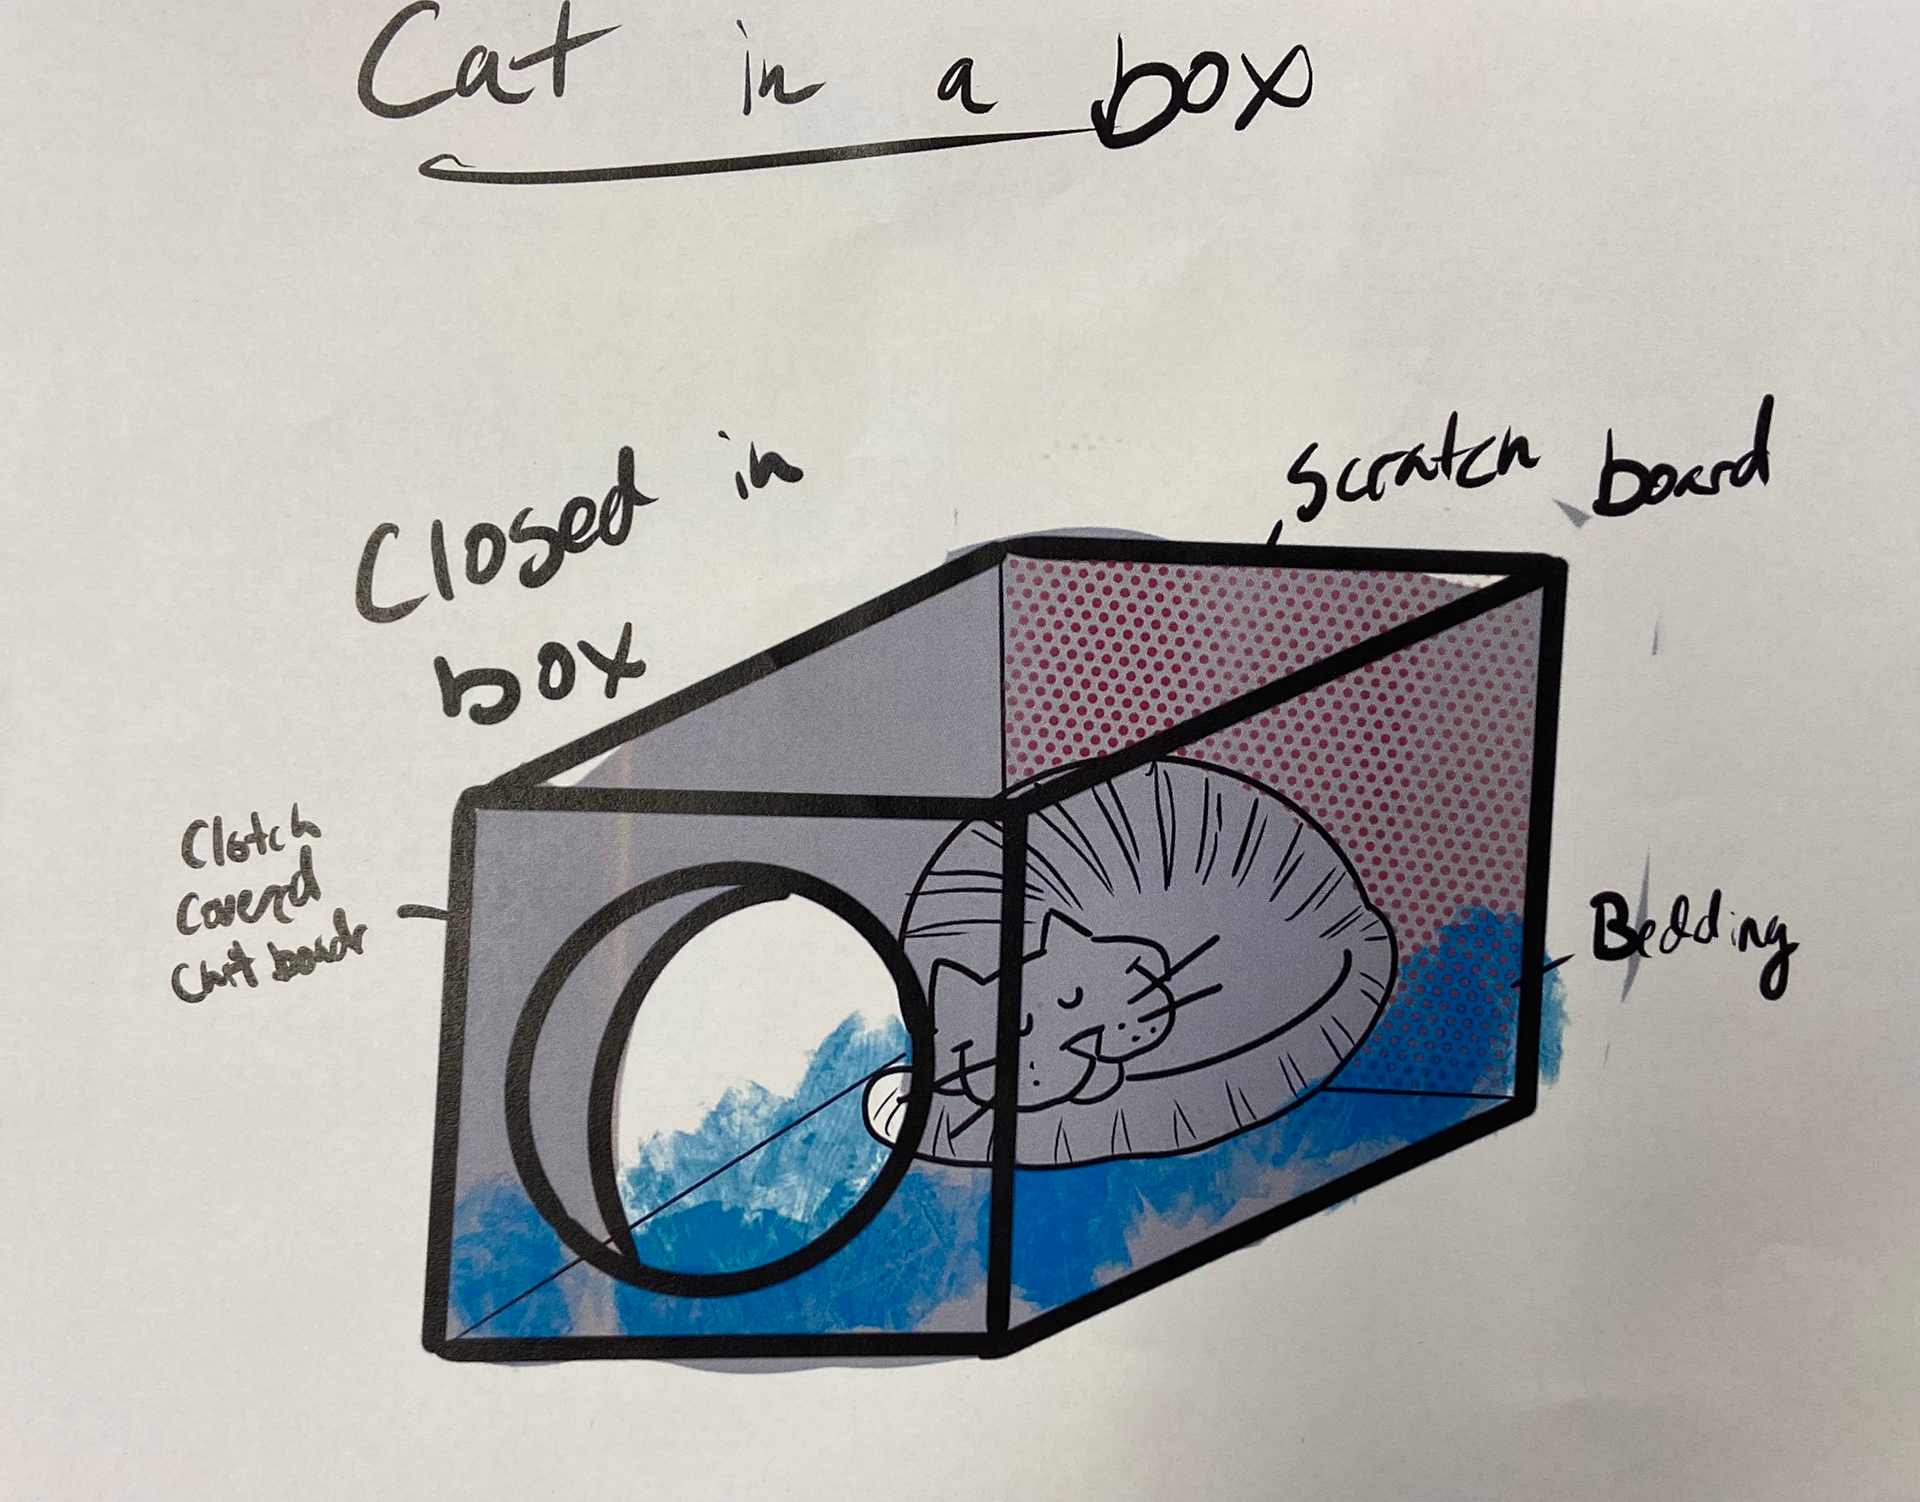 Cat in a box
Closed in
box
Scratch board
Clotch
Coverd
board
Bedding